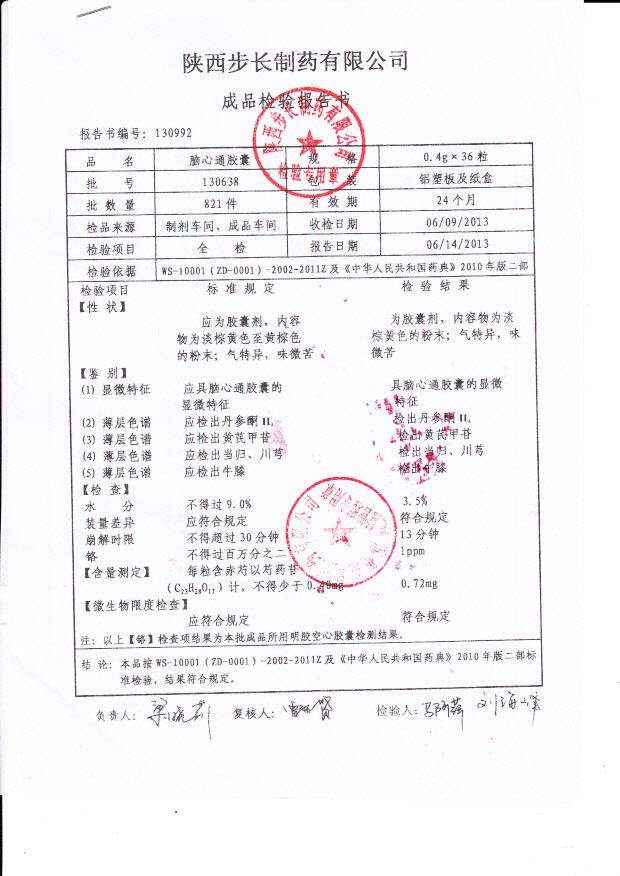 陕西步长制药有限公司
成品检验报告书
报告书编号：130992
品 名 脑心通胶囊 规 格 0.4g×36粒
批 号 130638 包 装 铝塑板及纸盒
批 数 量 821件 有 效 期 24个月
检品来源 制剂车间、成品车间 收检日期 06/09/2013
检验项目 全 检 报告日期 06/14/2013
检验依据 WS-10001（ZD-0001）-2002-2011Z及《中华人民共和国药典》2010年版二部
检验项目 标 准 规 定 检 验 结 果
【性 状】
应为胶囊剂，内容 为胶囊剂，内容物为淡
物为淡棕黄色至黄棕色 棕黄色的粉末；气特异，味
的粉末；气特异，味微苦 微苦
【鉴 别】
(1) 显微特征 应具脑心通胶囊的 具脑心通胶囊的显微
显微特征 特征
(2) 薄层色谱 应检出丹参酮IIA 检出丹参酮IIA
(3) 薄层色谱 应检出黄芪甲苷 检出黄芪甲苷
(4) 薄层色谱 应检出当归、川芎 检出当归、川芎
(5) 薄层色谱 应检出牛膝 检出牛膝
【检 查】
水 分 不得过9.0% 3.5%
装量差异 应符合规定 符合规定
崩解时限 不得超过30分钟 13分钟
铬 不得过百万分之二 1ppm
【含量测定】 每粒含赤芍以芍药苷
（C23H28O11）计，不得少于0.40mg 0.72mg
【微生物限度检查】
应符合规定 符合规定
注：以上【铬】检查项结果为本批成品所用明胶空心胶囊检测结果。
结 论：本品按WS-10001（ZD-0001）-2002-2011Z及《中华人民共和国药典》2010年版二部标
准检验，结果符合规定。
负责人： 复核人： 检验人： 刘海峰
陕西步长制药有限公司
检验专用章